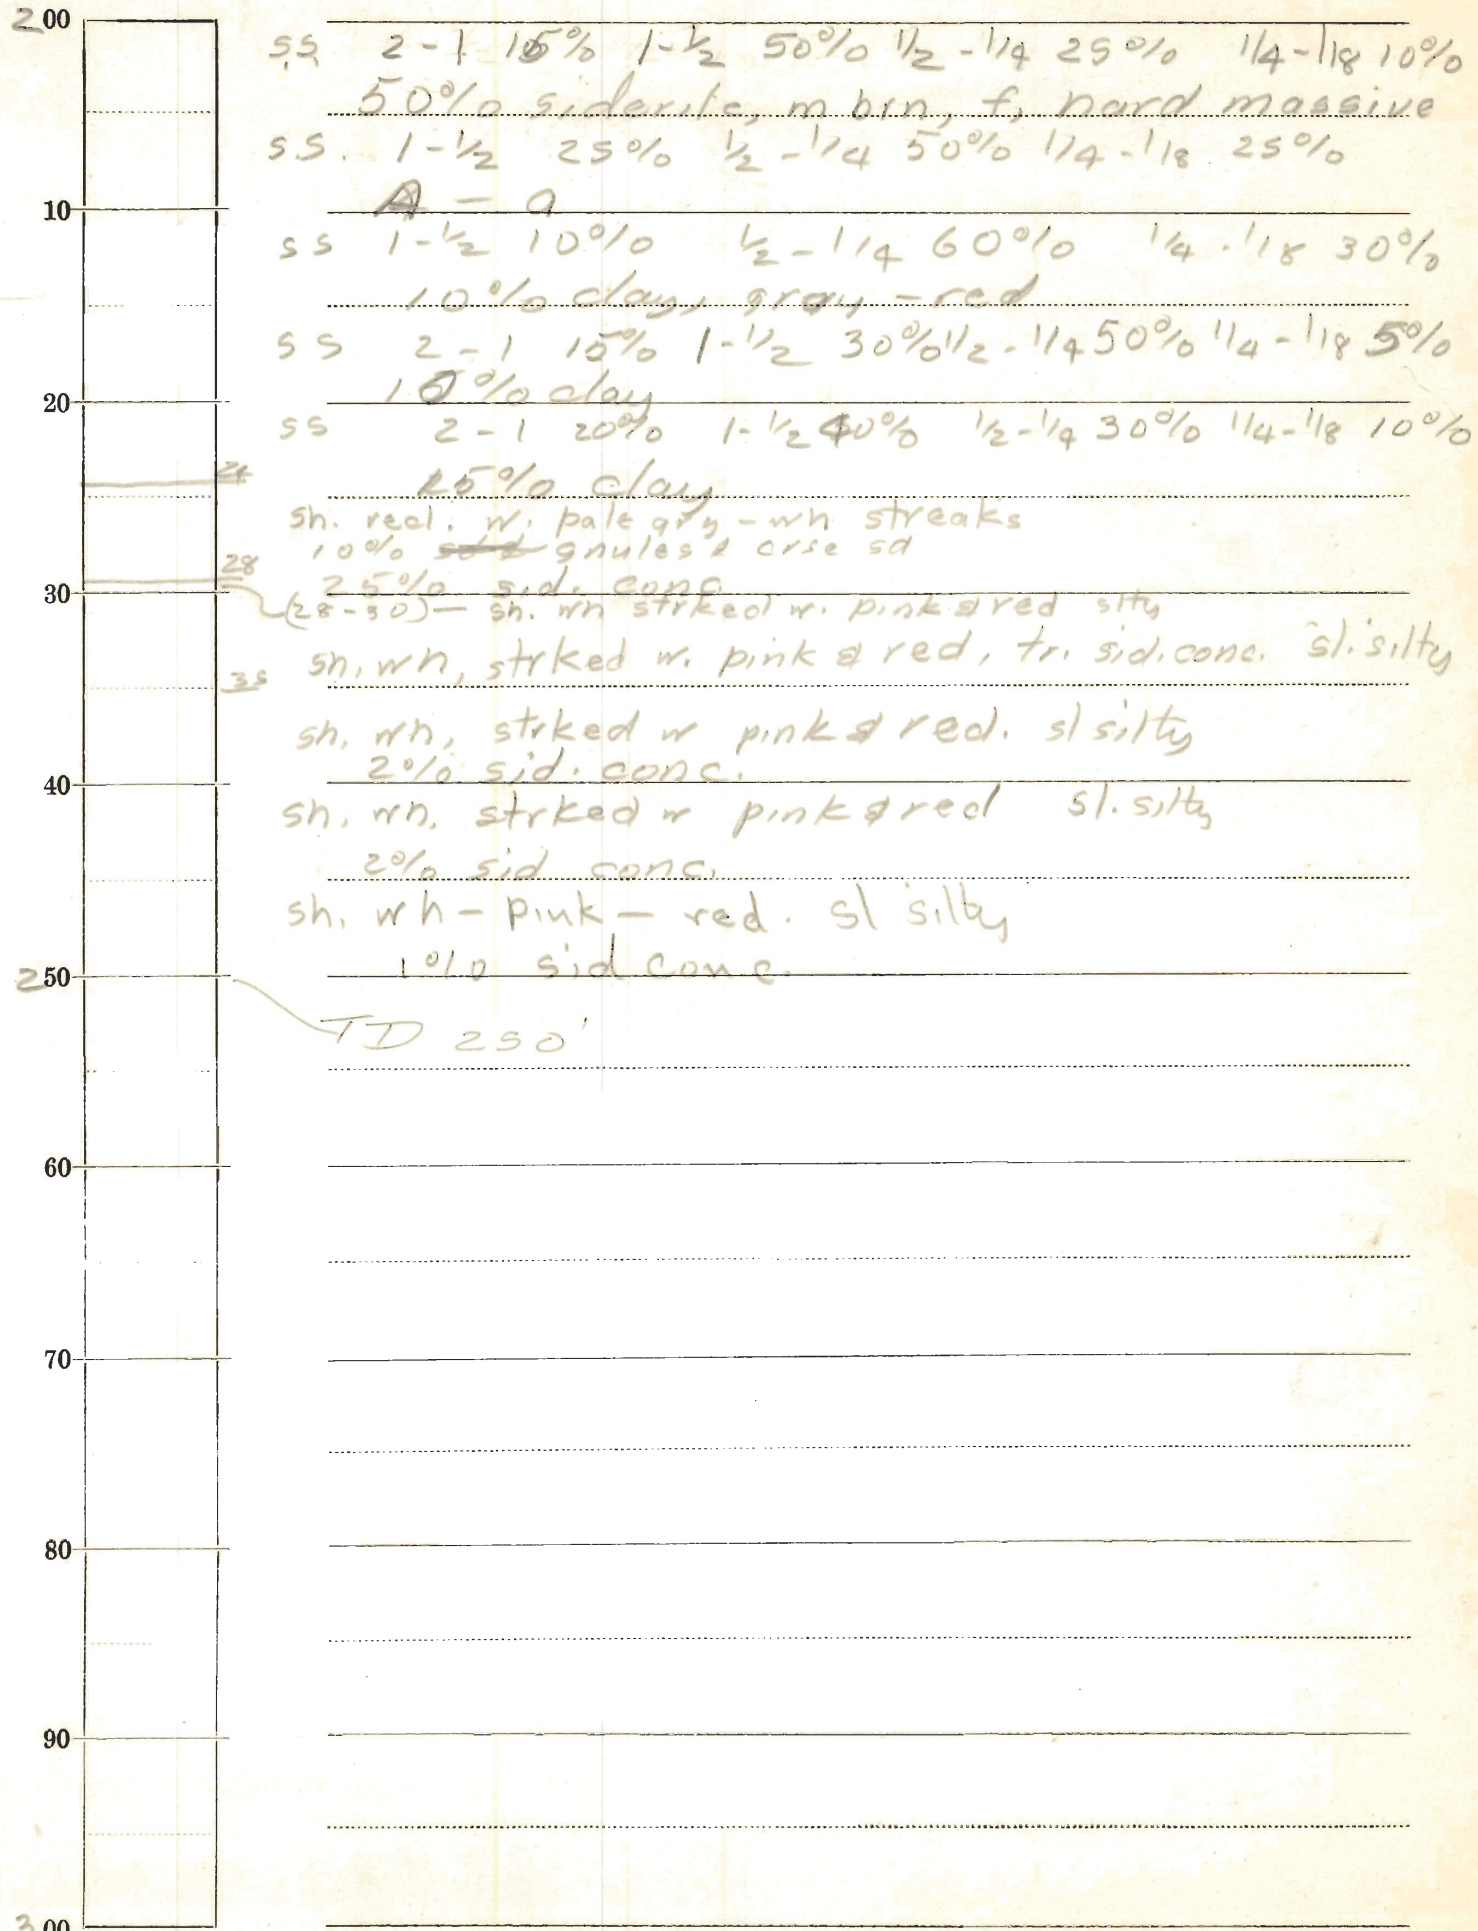 200
s.s. 2-1 15% 1-1/2 50% 1/2-1/4 25% 1/4-1/8 10%
50% siderite, m brn, f, hard massive
s.s. 1-1/2 25% 1/2-1/4 50% 1/4-1/8 25%
A - a
10
ss 1-1/2 10% 1/2-1/4 60% 1/4-1/8 30%
10% clay, gray-red
ss 2-1 15% 1-1/2 30% 1/2-1/4 50% 1/4-1/8 5%
10% clay
20
ss 2-1 20% 1-1/2 40% 1/2-1/4 30% 1/4-1/8 10%
24
15% clay
sh. red. w. pale gry-wh streaks
10% gnules & crse sd
28
25% sid. conc.
30
(28-30)- sh. wh strked w. pink & red slty
sh, wh, strked w. pink & red, tr. sid. conc. sl. silty
35
sh, wh, strked w pink & red. sl silty
2% sid. conc.
40
sh. wh. strked w pink & red sl. silty
2% sid conc.
sh. wh - pink - red. sl silty
1% sid conc.
250
TD 250'
60
70
80
90
300